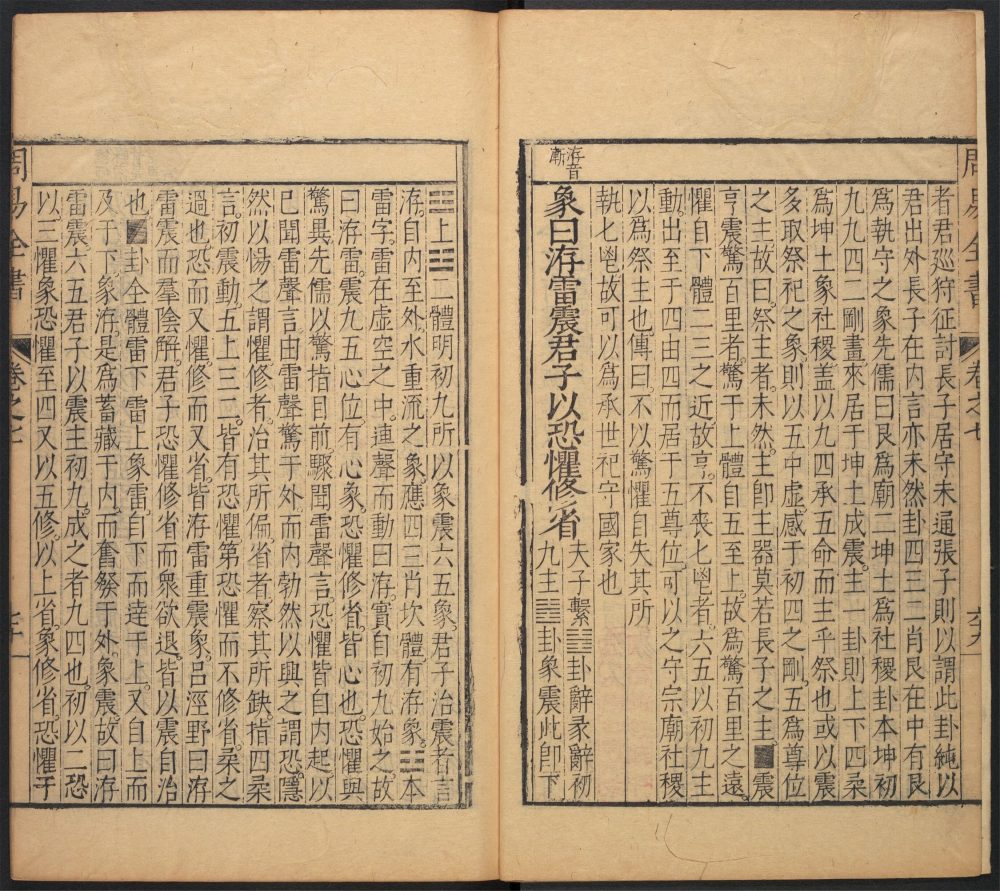 周易全書
卷之七
者君巡狩征討長子居守未逼張子則以謂此卦純以
君出外長子在内言亦未然卦四三二肖艮在中有艮
爲執守之象先儒曰艮爲廟二坤土爲社稷卦本坤初
九九四二剛畫來居于坤土成震主一卦則上下四柔
爲坤土象社稷盖以九四承五命而主乎祭也或以震
多取祭祀之象則以五中虚感于初四之剛五爲尊位
之主故曰祭主者未然主卽主器莫若長子之主震
亨震驚百里者驚于上體自五至上故爲驚百里之遠
懼自下體二三之近故亨不喪匕鬯者六五以初九主
動出至于四由四而居于五尊位可以之守宗廟社稷
以爲祭主也傳曰不以驚懼自失其所
執匕鬯故可以爲承世祀守國家也
洊音
漸
象曰洊雷震君子以恐懼修省
夫子繫䷲卦辭彖辭初
九主䷲卦象震此卽下
䷲上䷲二體明初九所以象震六五象君子治震者言
洊自内至外水重流之象應四三肖坎體有洊象䷲本
雷字雷在虚空之中連聲而動曰洊實自初九始之故
曰洊雷震九五心位有心象恐懼修省皆心也恐懼與
驚異先儒以驚指目前驟聞雷聲言恐懼皆自内起以
已聞雷聲言由雷聲驚于外而内勃然以興之謂恐隱
然以惕之謂懼修者治其所偏省者察其所缺指四柔
言初震動五上三二皆有恐懼第恐懼而不修省柔之
過也恐而又懼修而又省皆洊雷重震象吕涇野曰洊
雷震而羣陰解君子恐懼修省而衆欲退皆以震自治
也卦全體雷下雷上象雷自下而逹于上又自上而
及于下象洊是爲蓄藏于内而奮發于外象震故曰洊
雷震六五君子以震主初九成之者九四也初以二恐
以三懼象恐懼至四又以五修以上省象修省恐懼于
周易全書
卷之七